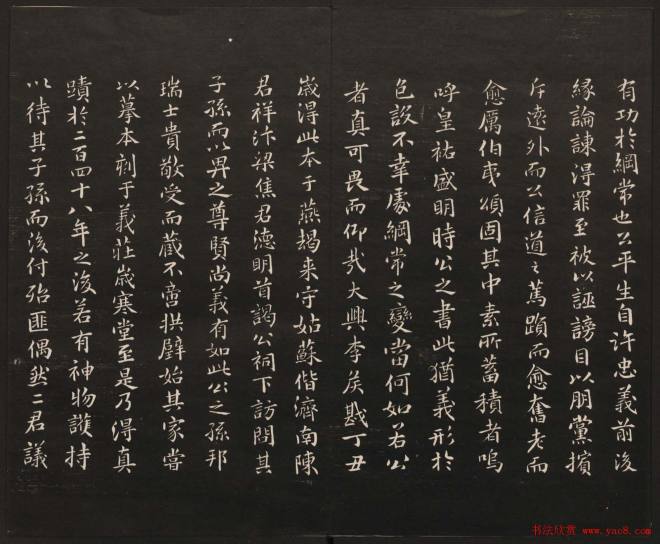 有功於綱常也公平生自許忠義前後
緣論諫得罪至被以誣謗目以朋黨擯
斥遠外而公信道之篤躓而愈奮老而
愈厲伯夷頌固其中素所蓄積者嗚
呼皇祐盛明時公之書此猶義形於
色設不幸處綱常之變當何如若公
者真可畏而仰哉大興李侯戡丁丑
歲得此本于燕朅来守姑蘇偕濟南陳
君祥汴梁焦君德明首謁公祠下訪問其
子孫而以畀之尊賢尚義有如此公之孫邦
瑞士貴敬受而蔵不啻拱璧始其家嘗
以摹本刻于義莊歲寒堂至是乃得真
蹟於二百四十八年之後若有神物護持
以待其子孫而後付殆匪偶然二君議
书法欣赏 www.yac8.com